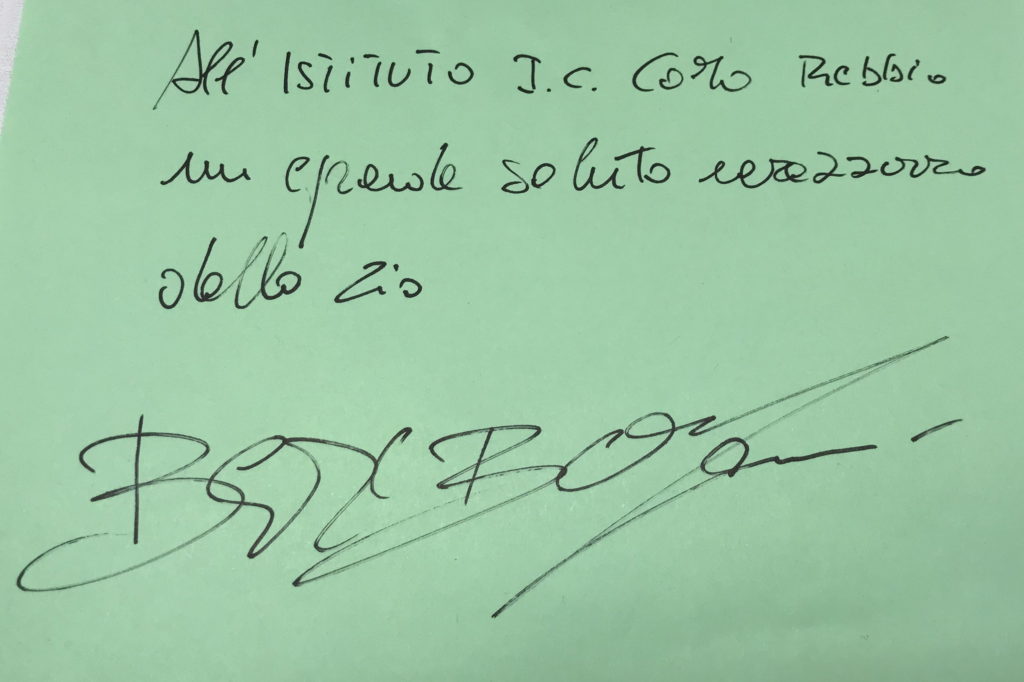 All' Istituto I.C. Como Rebbio
un grande saluto nerazzurro
dallo zio
Beppe Bergomi